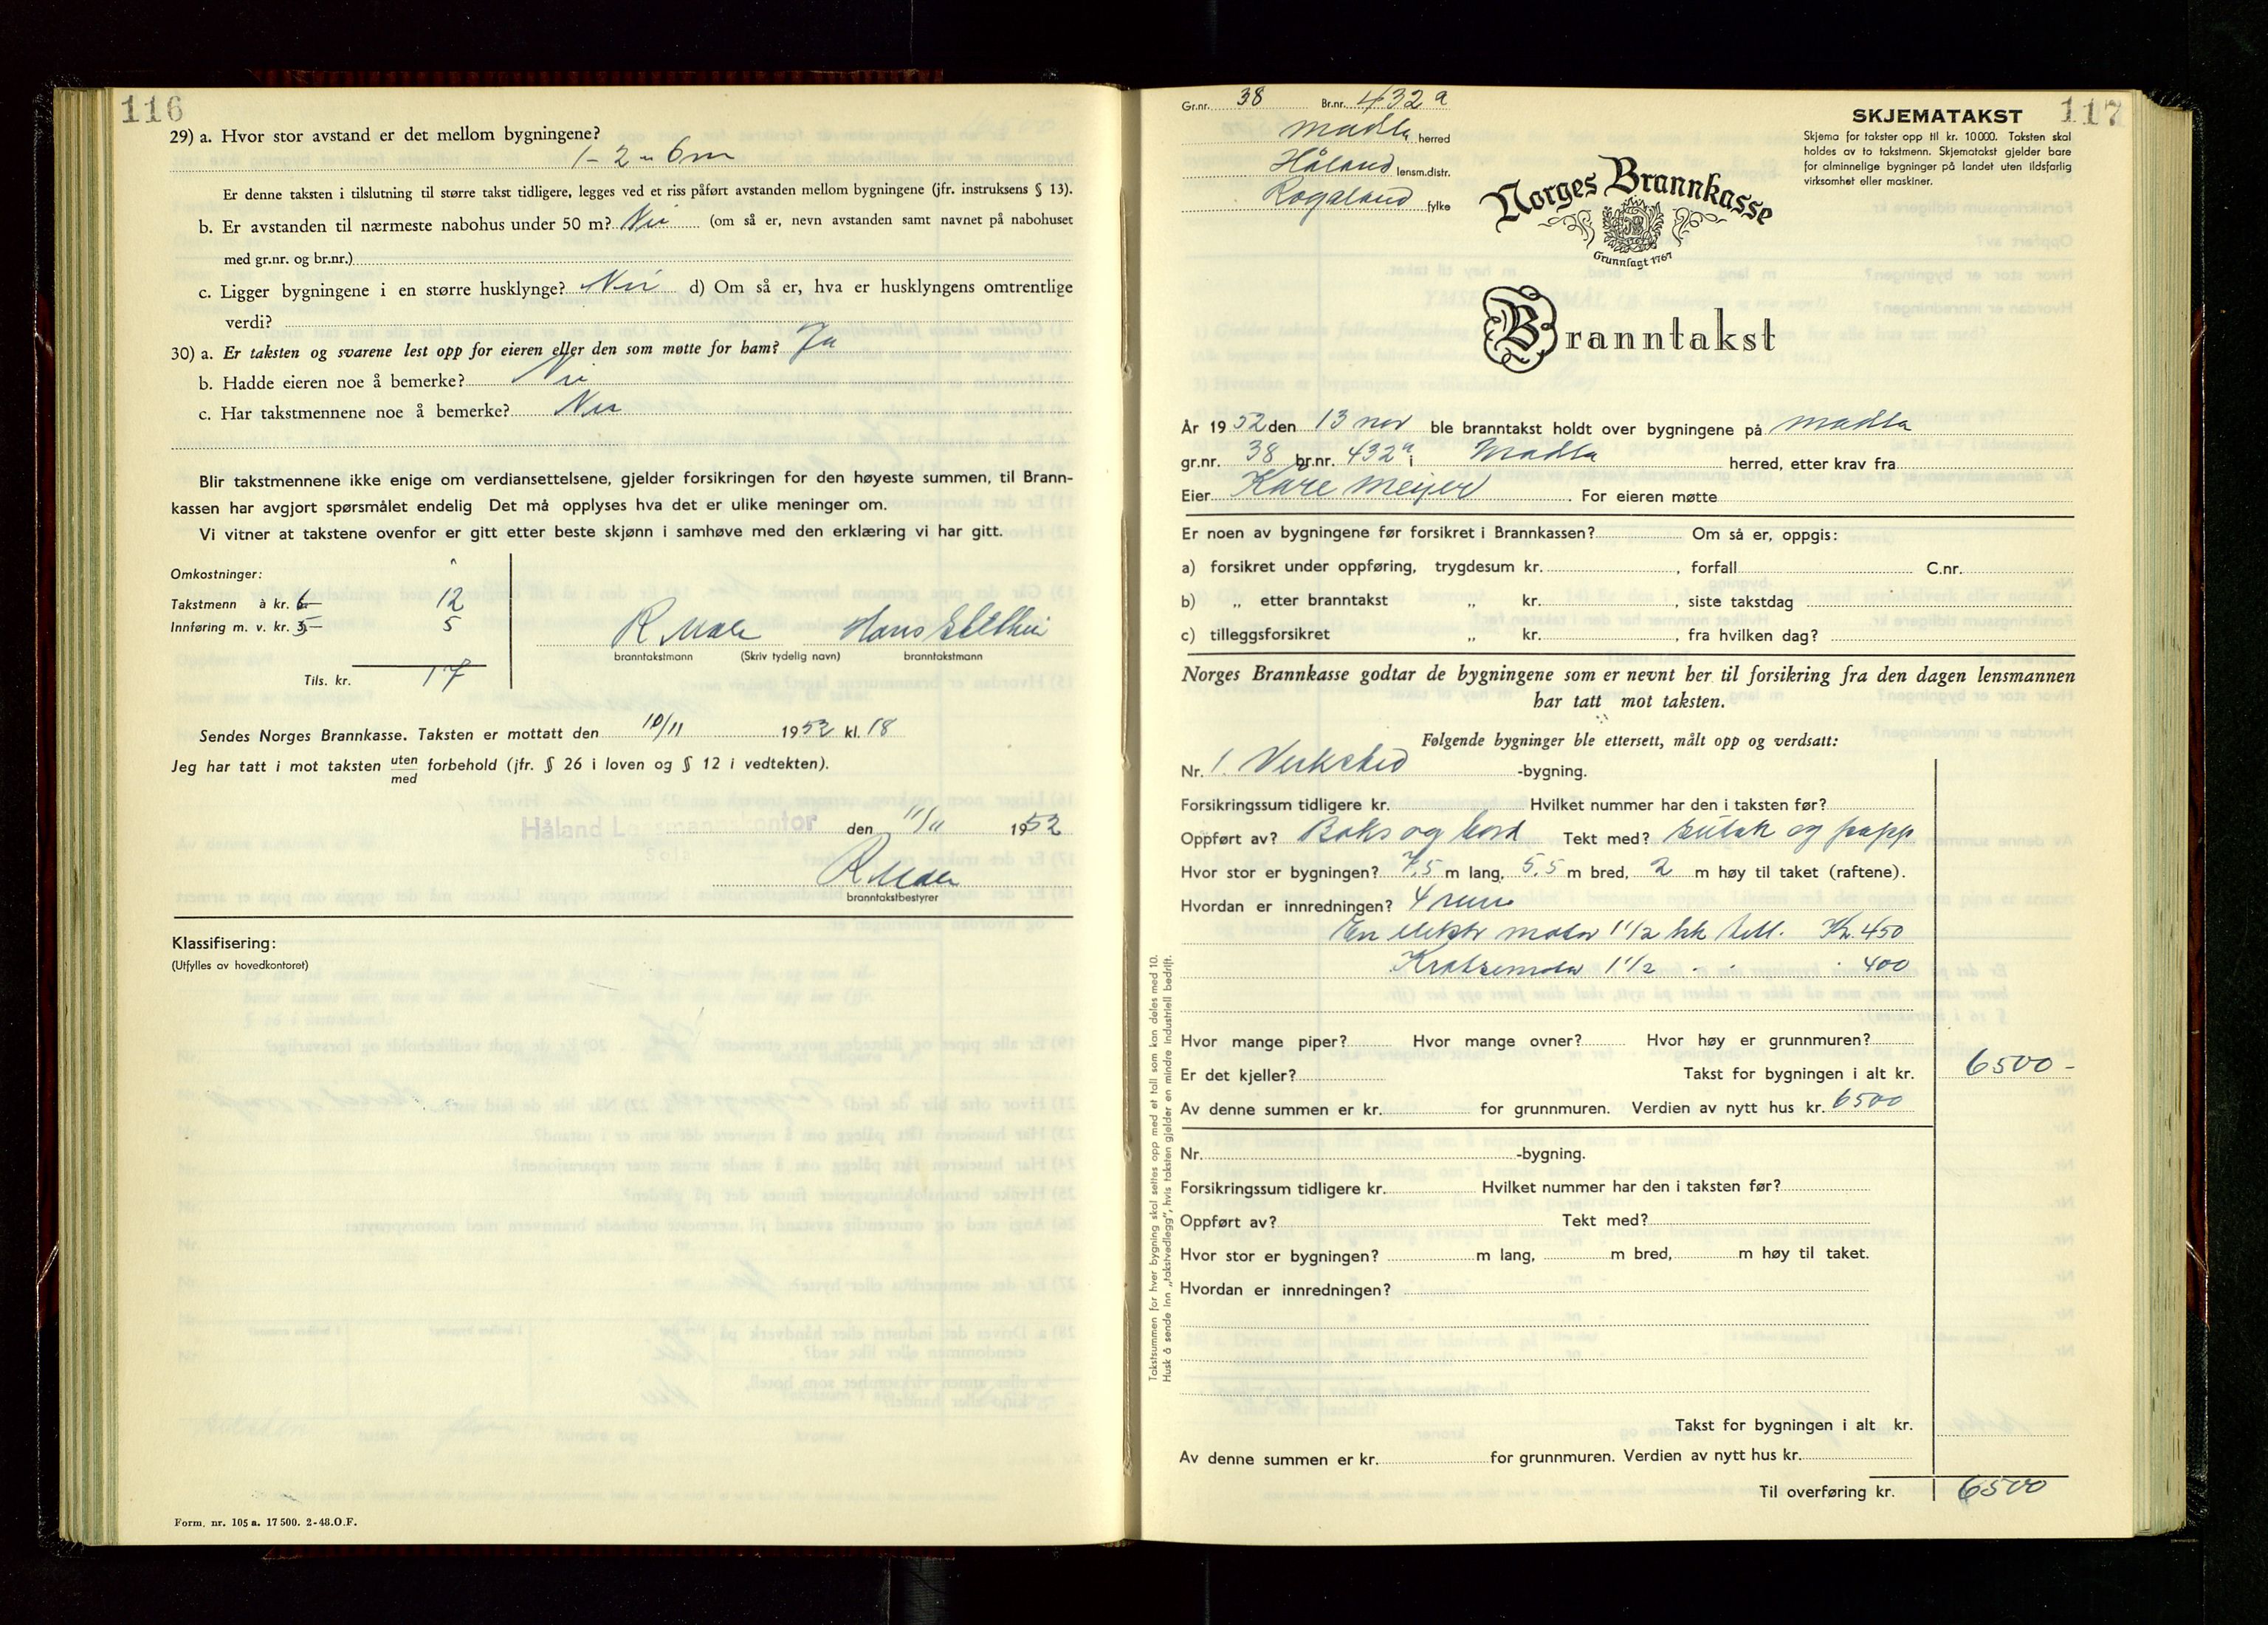 116
29) a. Hvor stor avstand er det mellom bygningene?
1 - 2 = 6 m
Er denne taksten i tilslutning til større takst tidligere, legges ved et riss påført avstanden mellom bygningene (jfr. instruksens § 13).
b. Er avstanden til nærmeste nabohus under 50 m? Nei (om så er, nevn avstanden samt navnet på nabohuset
med gr.nr. og br.nr.)
c. Ligger bygningene i en større husklynge? Nei d) Om så er, hva er husklyngens omtrentlige
verdi?
30) a. Er taksten og svarene lest opp for eieren eller den som møtte for ham? Ja
b. Hadde eieren noe å bemerke? Nei
c. Har takstmennene noe å bemerke? Nei
Blir takstmennene ikke enige om verdiansettelsene, gjelder forsikringen for den høyeste summen, til Brann-
kassen har avgjort spørsmålet endelig Det må opplyses hva det er ulike meninger om.
Vi vitner at takstene ovenfor er gitt etter beste skjønn i samhøve med den erklæring vi har gitt.
Omkostninger:
Takstmenn à kr. 6 12
Innføring m. v. kr. 5
R Male Hans
branntakstmann (Skriv tydelig navn) branntakstmann
Tils. kr. 17
Sendes Norges Brannkasse. Taksten er mottatt den 10/11 1952 kl. 18
Jeg har tatt i mot taksten uten
med forbehold (jfr. § 26 i loven og § 12 i vedtekten).
Håland Lensmannskontor den 11/11 1952
Sola
R Male
branntakstbestyrer
Klassifisering:
(Utfylles av hovedkontoret)
Form. nr. 105 a. 17 500. 2-48. O.F.
117
Gr.nr. 38 Br.nr. 432 a
Madla herred
Håland lensm.distr.
Rogaland fylke
SKJEMATAKST
Skjema for takster opp til kr. 10 000. Taksten skal
holdes av to takstmenn. Skjematakst gjelder bare
for alminnelige bygninger på landet uten ildsfarlig
virksomhet eller maskiner.
Norges Brannkasse
Grunnlagt 1767
Branntakst
År 1952 den 13 nov ble branntakst holdt over bygningene på Madla
gr.nr. 38 br.nr. 432 a i Madla herred, etter krav fra
Eier Kåre Meijer. For eieren møtte
Er noen av bygningene før forsikret i Brannkassen? Om så er, oppgis:
a) forsikret under oppføring, trygdesum kr. , forfall C.nr.
b) „ etter branntakst „ kr. , siste takstdag
c) tilleggsforsikret „ kr. , fra hvilken dag?
Norges Brannkasse godtar de bygningene som er nevnt her til forsikring fra den dagen lensmannen
har tatt mot taksten.
Følgende bygninger ble ettersett, målt opp og verdsatt:
Nr. 1. Verksted -bygning.
Forsikringssum tidligere kr. Hvilket nummer har den i taksten før?
Oppført av? Boks og bord Tekt med? sutak og papp
Hvor stor er bygningen? 7,5 m lang, 5,5 m bred, 2 m høy til taket (raftene).
Hvordan er innredningen? 4 rum
En elektr motor 1 1/2 hk Kr. 450
1 1/2 . . . 400
Hvor mange piper? Hvor mange ovner? Hvor høy er grunnmuren?
Er det kjeller? Takst for bygningen i alt kr. 6500 -
Av denne summen er kr. for grunnmuren. Verdien av nytt hus kr. 6500
Nr. -bygning.
Forsikringssum tidligere kr. Hvilket nummer har den i taksten før?
Oppført av? Tekt med?
Hvor stor er bygningen? m lang, m bred, m høy til taket.
Hvordan er innredningen?
Takst for bygningen i alt kr.
Av denne summen er kr. for grunnmuren. Verdien av nytt hus kr.
Til overføring kr. 6500
Takstsummen for hver bygning skal settes opp med et tall som kan deles med 10.
Husk å sende inn „takstvedlegg", hvis taksten gjelder en mindre industriell bedrift.